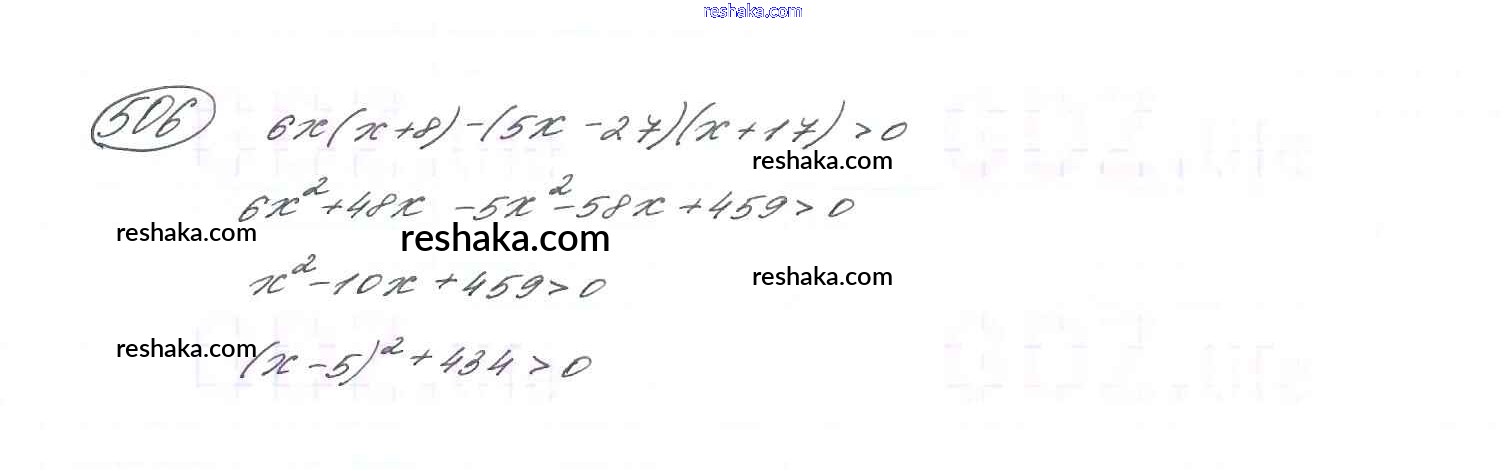 reshaka.com
506 6x(x+8)-(5x-27)(x+17)>0
reshaka.com
6x²+48x-5x²-58x+459>0
reshaka.com reshaka.com
x²-10x+459>0
reshaka.com
reshaka.com
(x-5)²+434>0